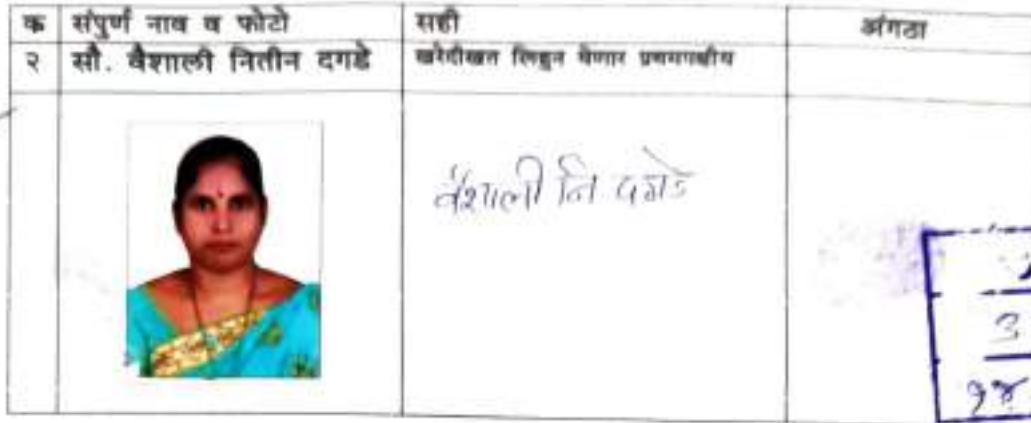 क संपुर्ण नाव व फोटो सही अंगठा
२ सौ. वैशाली नितीन दगडे खरेदीखत लिहून घेणार प्रथमपक्षीय
वैशाली नि दगडे
3
१४